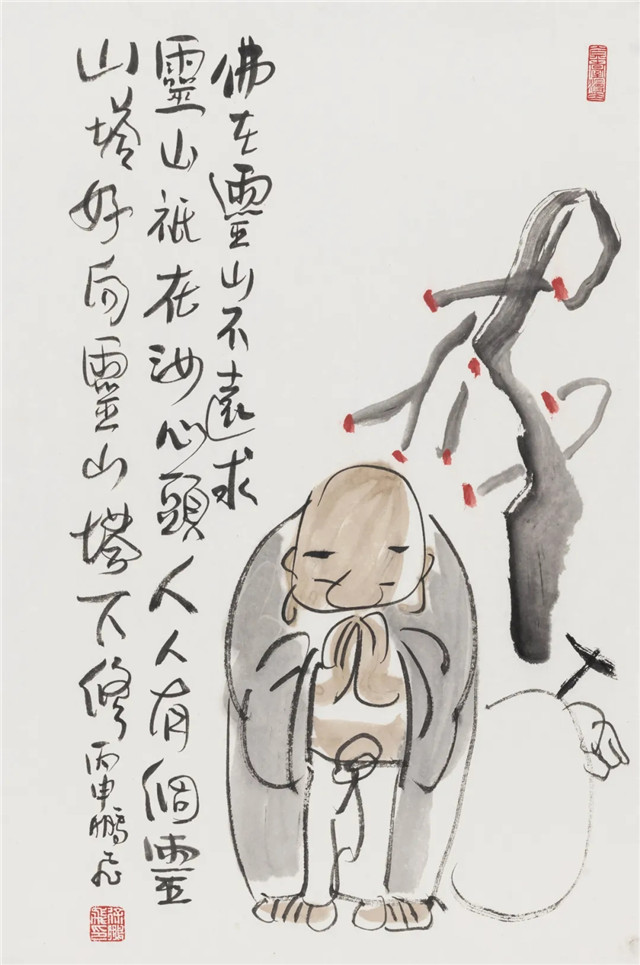 佛在靈山不遠求
靈山祇在汝心頭人人有個靈
山塔好向靈山塔下修
丙申鵬飛
徐鵬飛印